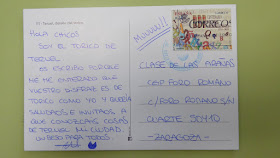 HOLA CHICOS
SOY EL TORICO DE
TERUEL.
OS ESCRIBO PORQUE
ME HE ENTERADO QUE
VUESTRO DISFRAZ ES DE
TORICO COMO YO Y QUERÍA
SALUDAROS E INVITAROS A
QUE CONOZCAIS COSAS
DE TERUEL MI CIUDAD.
UN BESO PARA TODOS.
Muuuu!!
CORREOS
CLASE DE LAS ARAÑAS
CEIP FORO ROMANO
C/ FORO ROMANO S/N
CUARTE 50410
- ZARAGOZA -